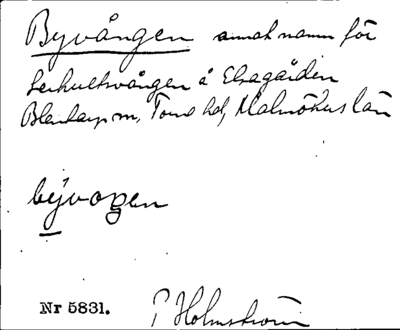 Byvången annat namn för
Lerhultsvången å Elsagården
Blentarp sn, Torna hd, Malmöhus län
bývoŋen
Nr 5831. P Holmström